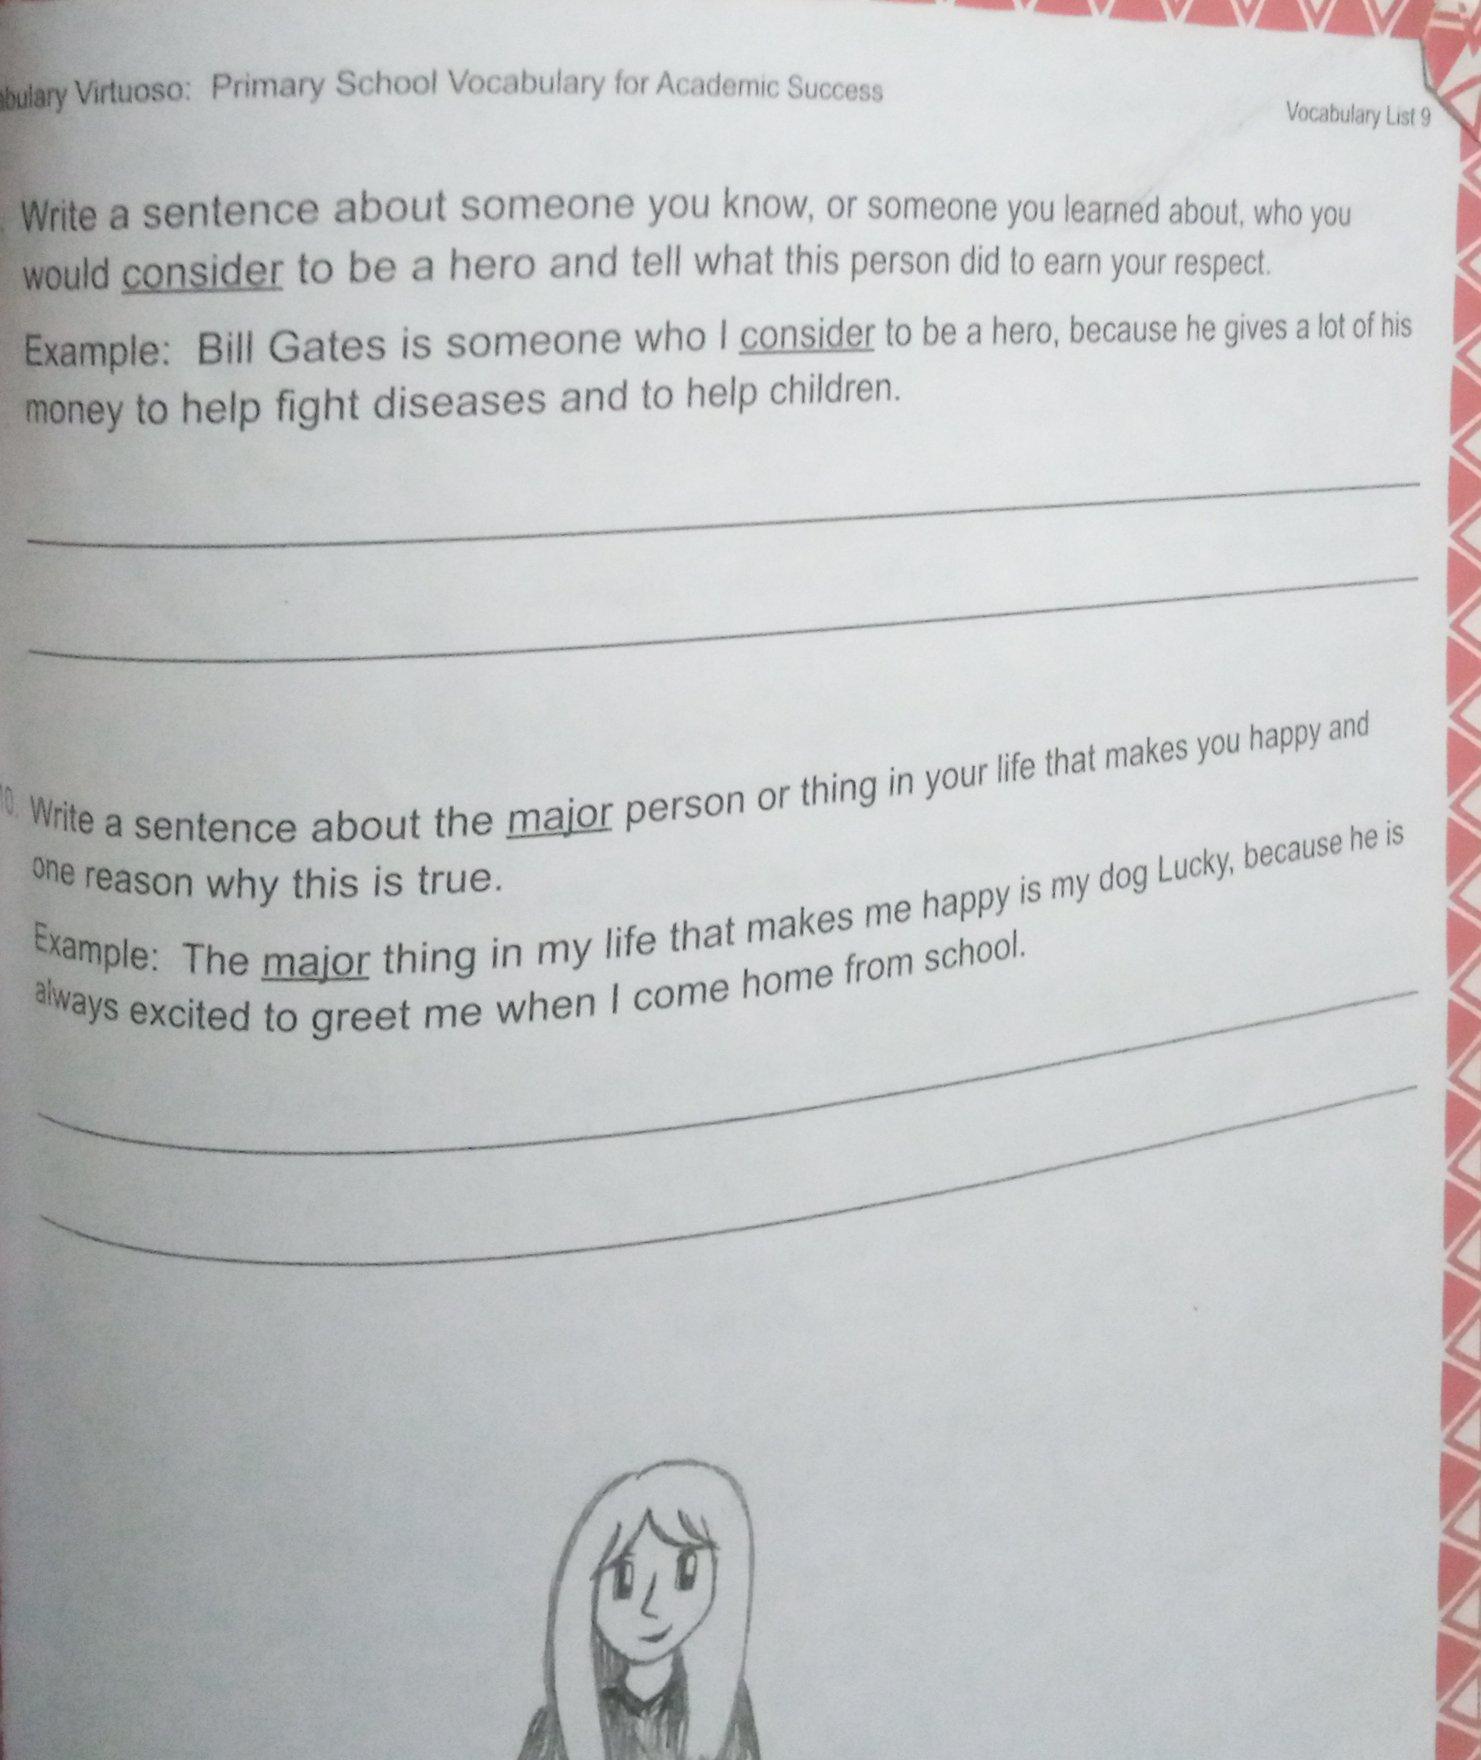 Virtuoso: Primary School Vocabulary for Academic Success
Vocabulary List 9
Write a sentence about someone you know, or someone you learned about, who you
would consider to be a hero and tell what this person did to earn your respect.
Example: Bill Gates is someone who I consider to be a hero, because he gives a lot of his
money to help fight diseases and to help children.
0. Write a sentence about the major person or thing in your life that makes you happy and
one reason why this is true.
Example: The major thing in my life that makes me happy is my dog Lucky, because he is
always excited to greet me when I come home from school.